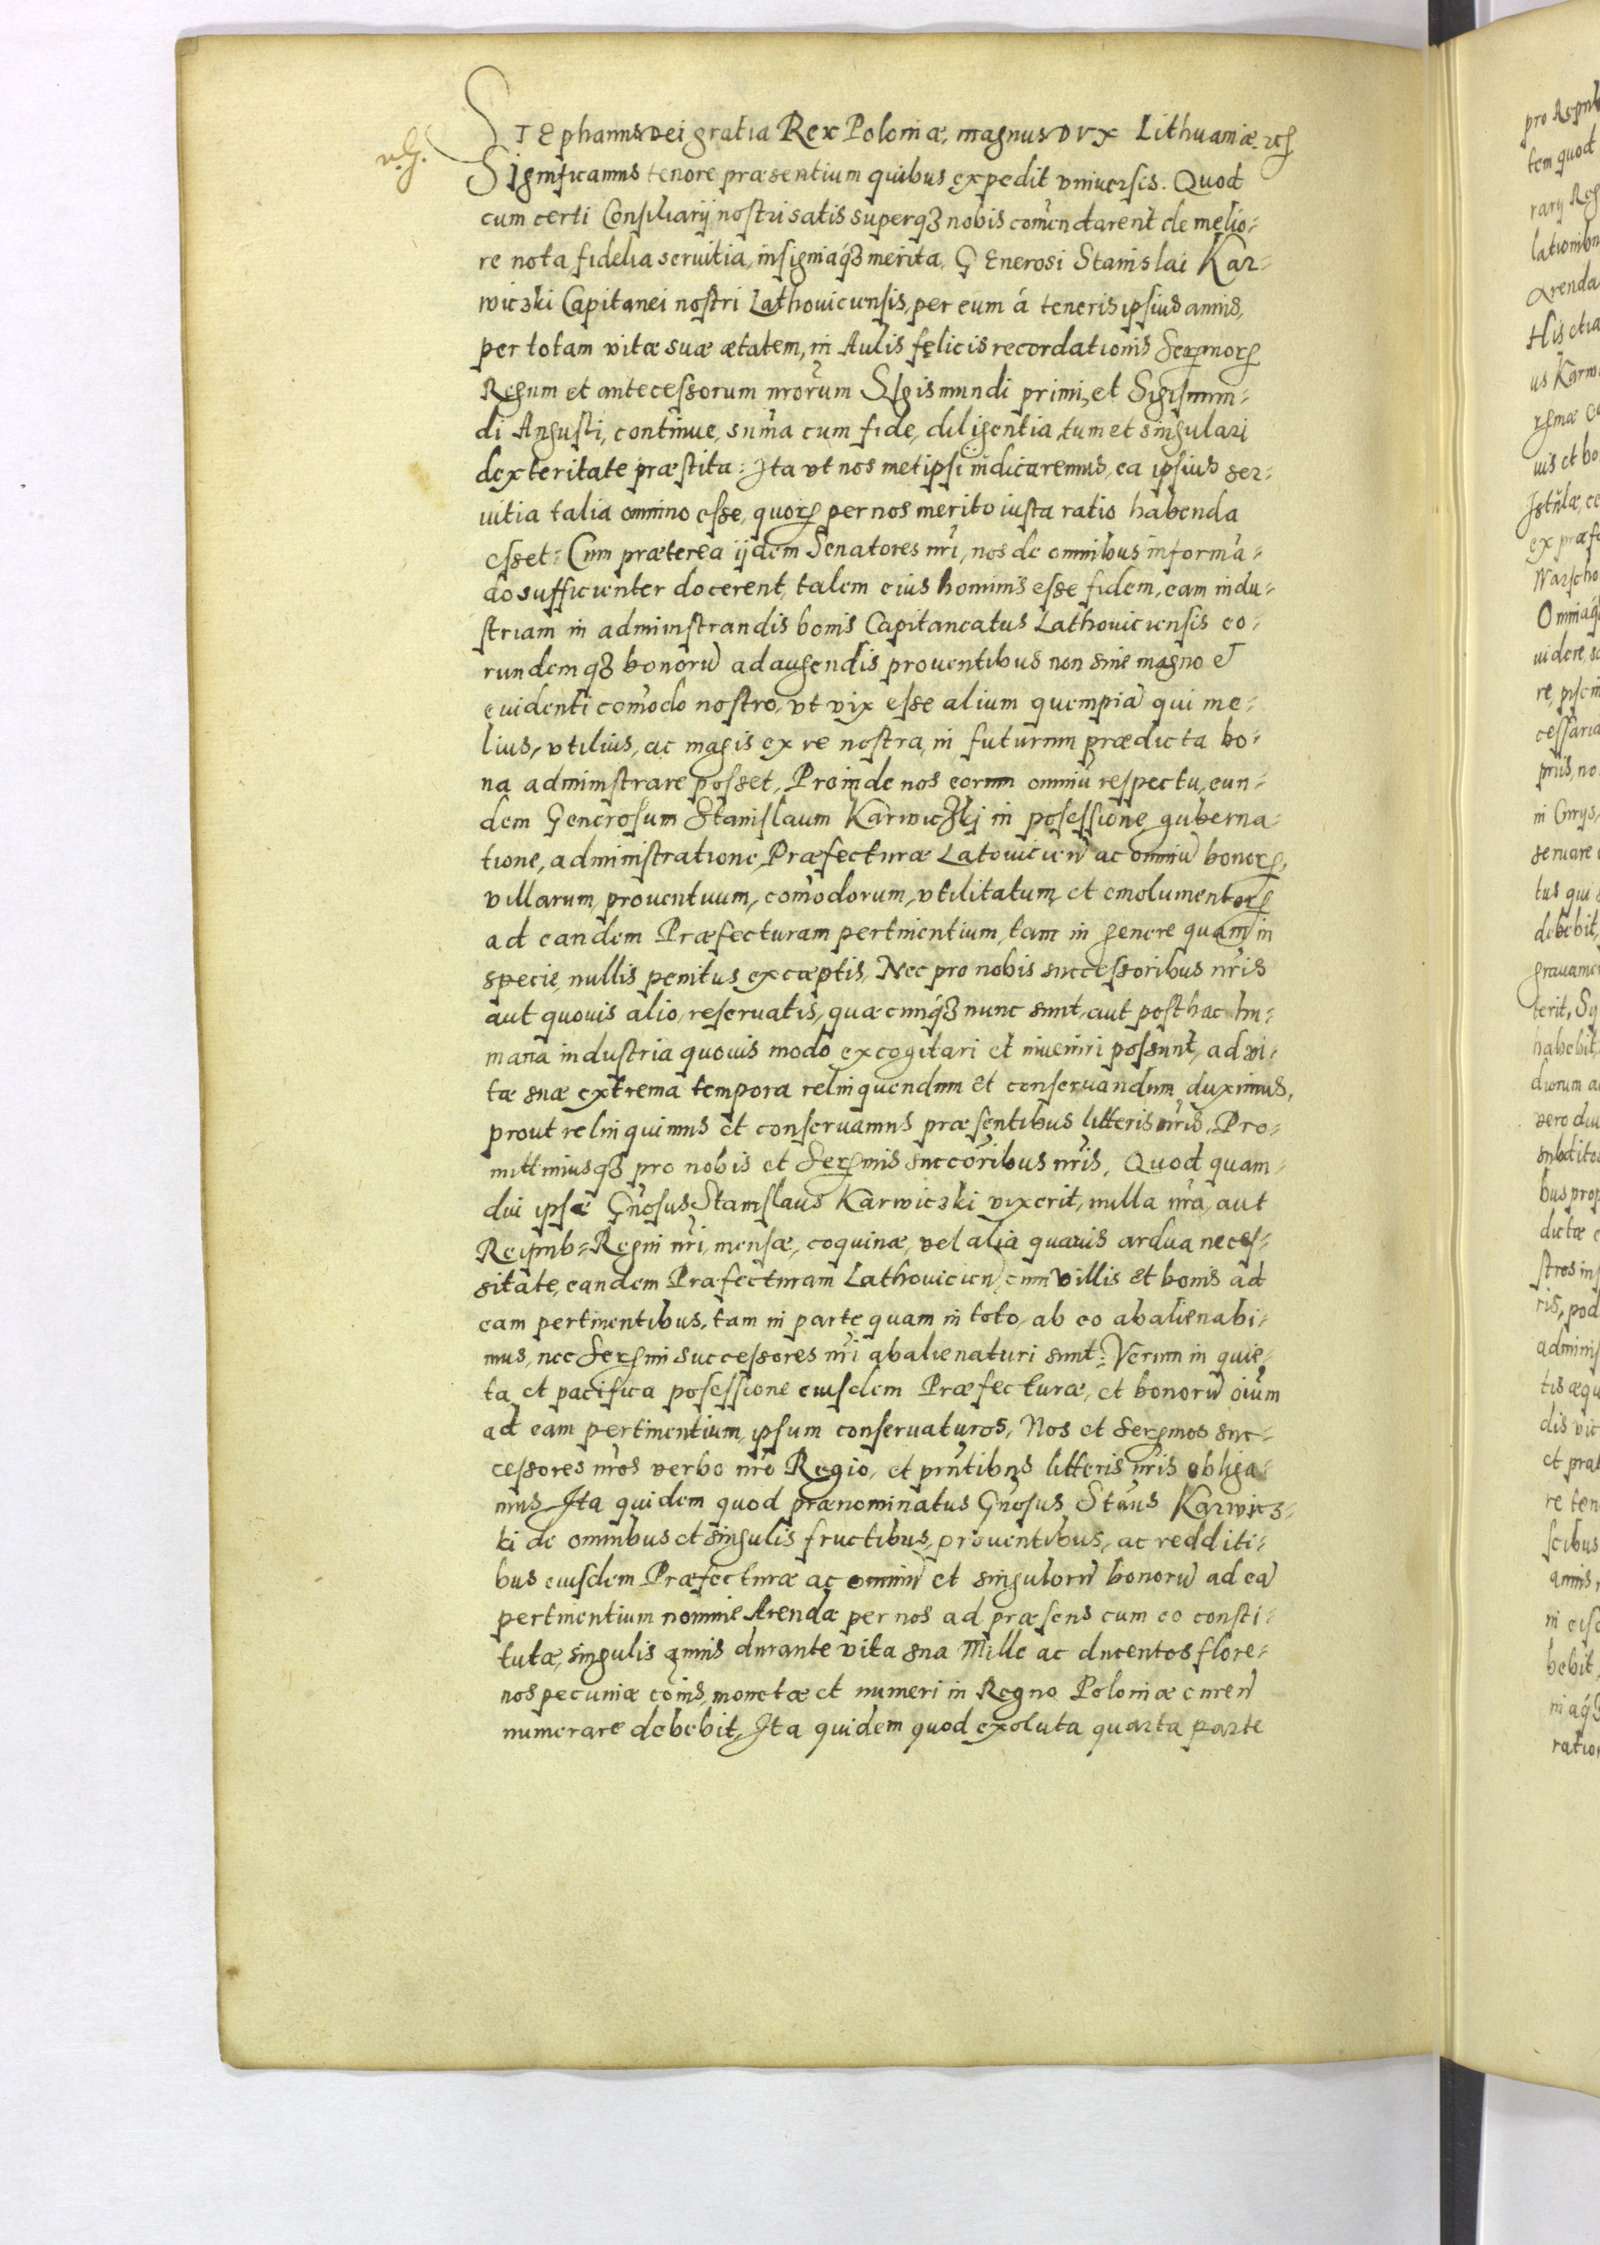 STEphanus Dei gratia Rex Poloniæ, magnus DVX Lithuaniæ. etc
Significamus tenore præsentium quibus expedit vniuersis. Quod
cum certi Consiliarij nostri satis superq3 nobis comendarent de melio-
re nota, fidelia seruitia, insigniaq3 merita, GEnerosi Stanislai Kar-
wiczki Capitanei nostri Lathouiciensis, per eum á teneris ipsius annis,
per totam vitæ suæ ætatem, in Aulis felicis recordationis Sermor
Regum et antecessorum nrorum SIgismundi primi, et Sigismun-
di Augusti, continue, suma cum fide, diligentia, tum et singulari
dexteritate præstita: Ita vt nos metipsi indicaremus, ea ipsius ser-
uitia talia omnino esse, quor per nos merito iusta ratio habenda
esset: Cum præterea ijdem Senatores nri, nos de omnibus informa-
do sufficienter docerent, talem eius hominis esse fidem, eam indu-
striam in administrandis bonis Capitaneatus Lathouiciensis eo-
rundemq3 bonorũ adaugendis prouentibus non sine magno et
euidenti comodo nostro, vt vix esse alium quempiã qui me-
lius, vtilius, ac magis ex re nostra, in futurum prædicta bo-
na administrare posset, Proinde nos eorum omniũ respectu, eun-
dem Generosum Stanislaum Karwiczkj in posessione, guberna-
tione, administratione, Præfecturæ Latouicien ac omniũ bonor,
villarum, prouentuum, comodorum, vtilitatum, et emolumentor
ad eandem Præfecturam pertinentium, tam in genere quam in
specie, nullis penitus exceptis, Nec pro nobis successoribus nris
aut quouis alio, reseruatis, quæcunq3 nunc sunt, aut posthac hu-
mana industria quouis modo excogitari et inueniri possunt, ad vi-
tæ suæ extrema tempora relinquendum et conseruandum duximus,
prout relinquimus et conseruamus præsentibus litteris nris. Pro-
mittimusq3 pro nobis et Sermis succoribus nris, Quod quam-
diu ipse Gnosus Stanislaus Karwiczki vixerit, nulla nra, aut
Reipub= Regni nri, mensæ, coquinæ, vel alia quauis ardua neces-
sitate, eandem Præfecturam Lathouicien cum villis et bonis ad
eam pertinentibus, tam in parte quam in toto, ab eo abalienabi-
mus, nec Sermi successores nri abalienaturi sunt: Verum in quie-
ta et pacifica posessione eiusdem Præfecturæ, et bonorũ oium
ad eam pertinentium, ipsum conseruaturos, Nos et sermos suc-
cessores nros verbo nro Regio, et pntibus litteris nris obliga-
mus Ita quidem quod prænominatus Gnosus Staus Karwicz-
ki de omnibus et singulis fructibus, prouentibus, ac redditi-
bus eiusdem Præfecturæ ac omniũ et singulorũ bonorũ ad eã
pertinentium nomine Arendæ per nos ad præsens cum eo consti-
tutæ, singulis annis durante vita sua Mille ac ducentos flore-
nos pecuniæ cois, monetæ et numeri in Regno Poloniæ curen
numerare debebit, Ita quidem quod exoluta quarta parte